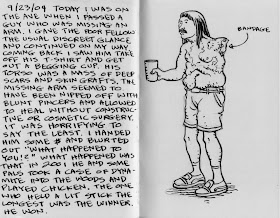 9/23/04 TODAY I WAS ON
THE AVE WHEN I PASSED A
GUY WHO WAS MISSING AN
ARM. I GAVE THE POOR FELLOW
THE USUAL DISCREET GLANCE
AND CONTINUED ON MY WAY.
COMING BACK I SAW HIM TAKE
OFF HIS T-SHIRT AND GET
OUT A BEGGING CUP. HIS
TORSO WAS A MASS OF DEEP
SCARS AND SKIN GRAFTS. THE
MISSING ARM SEEMED TO
HAVE BEEN NIPPED OFF WITH
BLUNT PINCERS AND ALLOWED
TO HEAL WITHOUT CONSTRUC-
TIVE OR COSMETIC SURGERY.
IT WAS HORRIFYING TO
SAY THE LEAST. I HANDED
HIM SOME $ AND BLURTED
OUT "WHAT HAPPENED TO
YOU!?" WHAT HAPPENED WAS
THAT IN 2001 HE AND SOME
PALS TOOK A CASE OF DYNA-
MITE INTO THE WOODS AND
PLAYED CHICKEN. THE ONE
WHO HELD A LIT STICK THE
LONGEST WAS THE WINNER.
HE WON.
BANDAGE